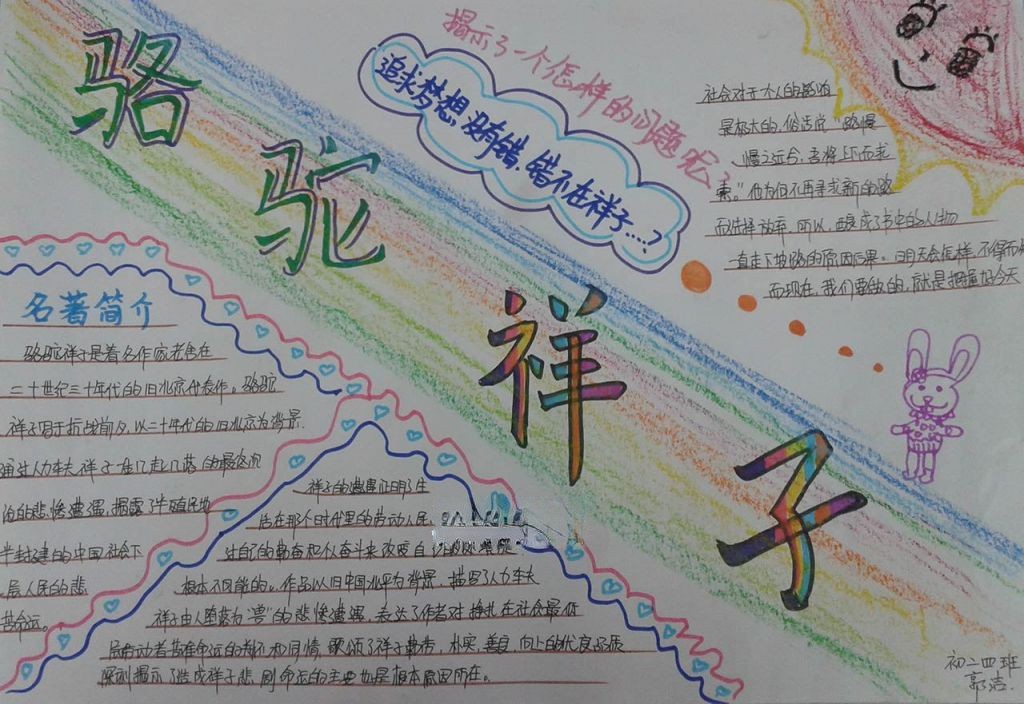 骆驼祥子
揭示了一个怎样的问题呢？
追求梦想，没有错，错不在祥子...？
社会对于个人的影响
是极大的，俗话说"路慢
慢之远合，吾将上下而求
索。"他为何不再寻求新的路
而选择放弃，所以，酿成了书中的人物
一直走下坡路的原因后果。明天会怎样，不得而
而现在，我们要做的，就是把握好今天
名著简介
骆驼祥子是著名作家老舍在
二十世纪三十年代的旧北京代表作。骆驼
祥子写于抗战前夕，以二十年代的旧北京为背景.
通过人力车夫祥子
的悲惨遭遇，揭露了半殖民地
半封建的中国社会下
层人民的悲
苦命运。
祥子的遭遇证明了生
活在那个时代里的劳动人民，
过自己的勤奋和个人奋斗来改变自
根本不可能的。作品以旧中国北平为背景，描写了人力车夫
祥子由人堕落为"兽"的悲惨遭遇，表达了作者对挣扎在社会最低
层劳动者苦难命运的 和同情，歌颂了祥子勤劳，朴实，善良，向上的优良品质
深刻揭示了造成祥子悲剧命运的主要也是根本原因所在。
初二四班
郭洁.